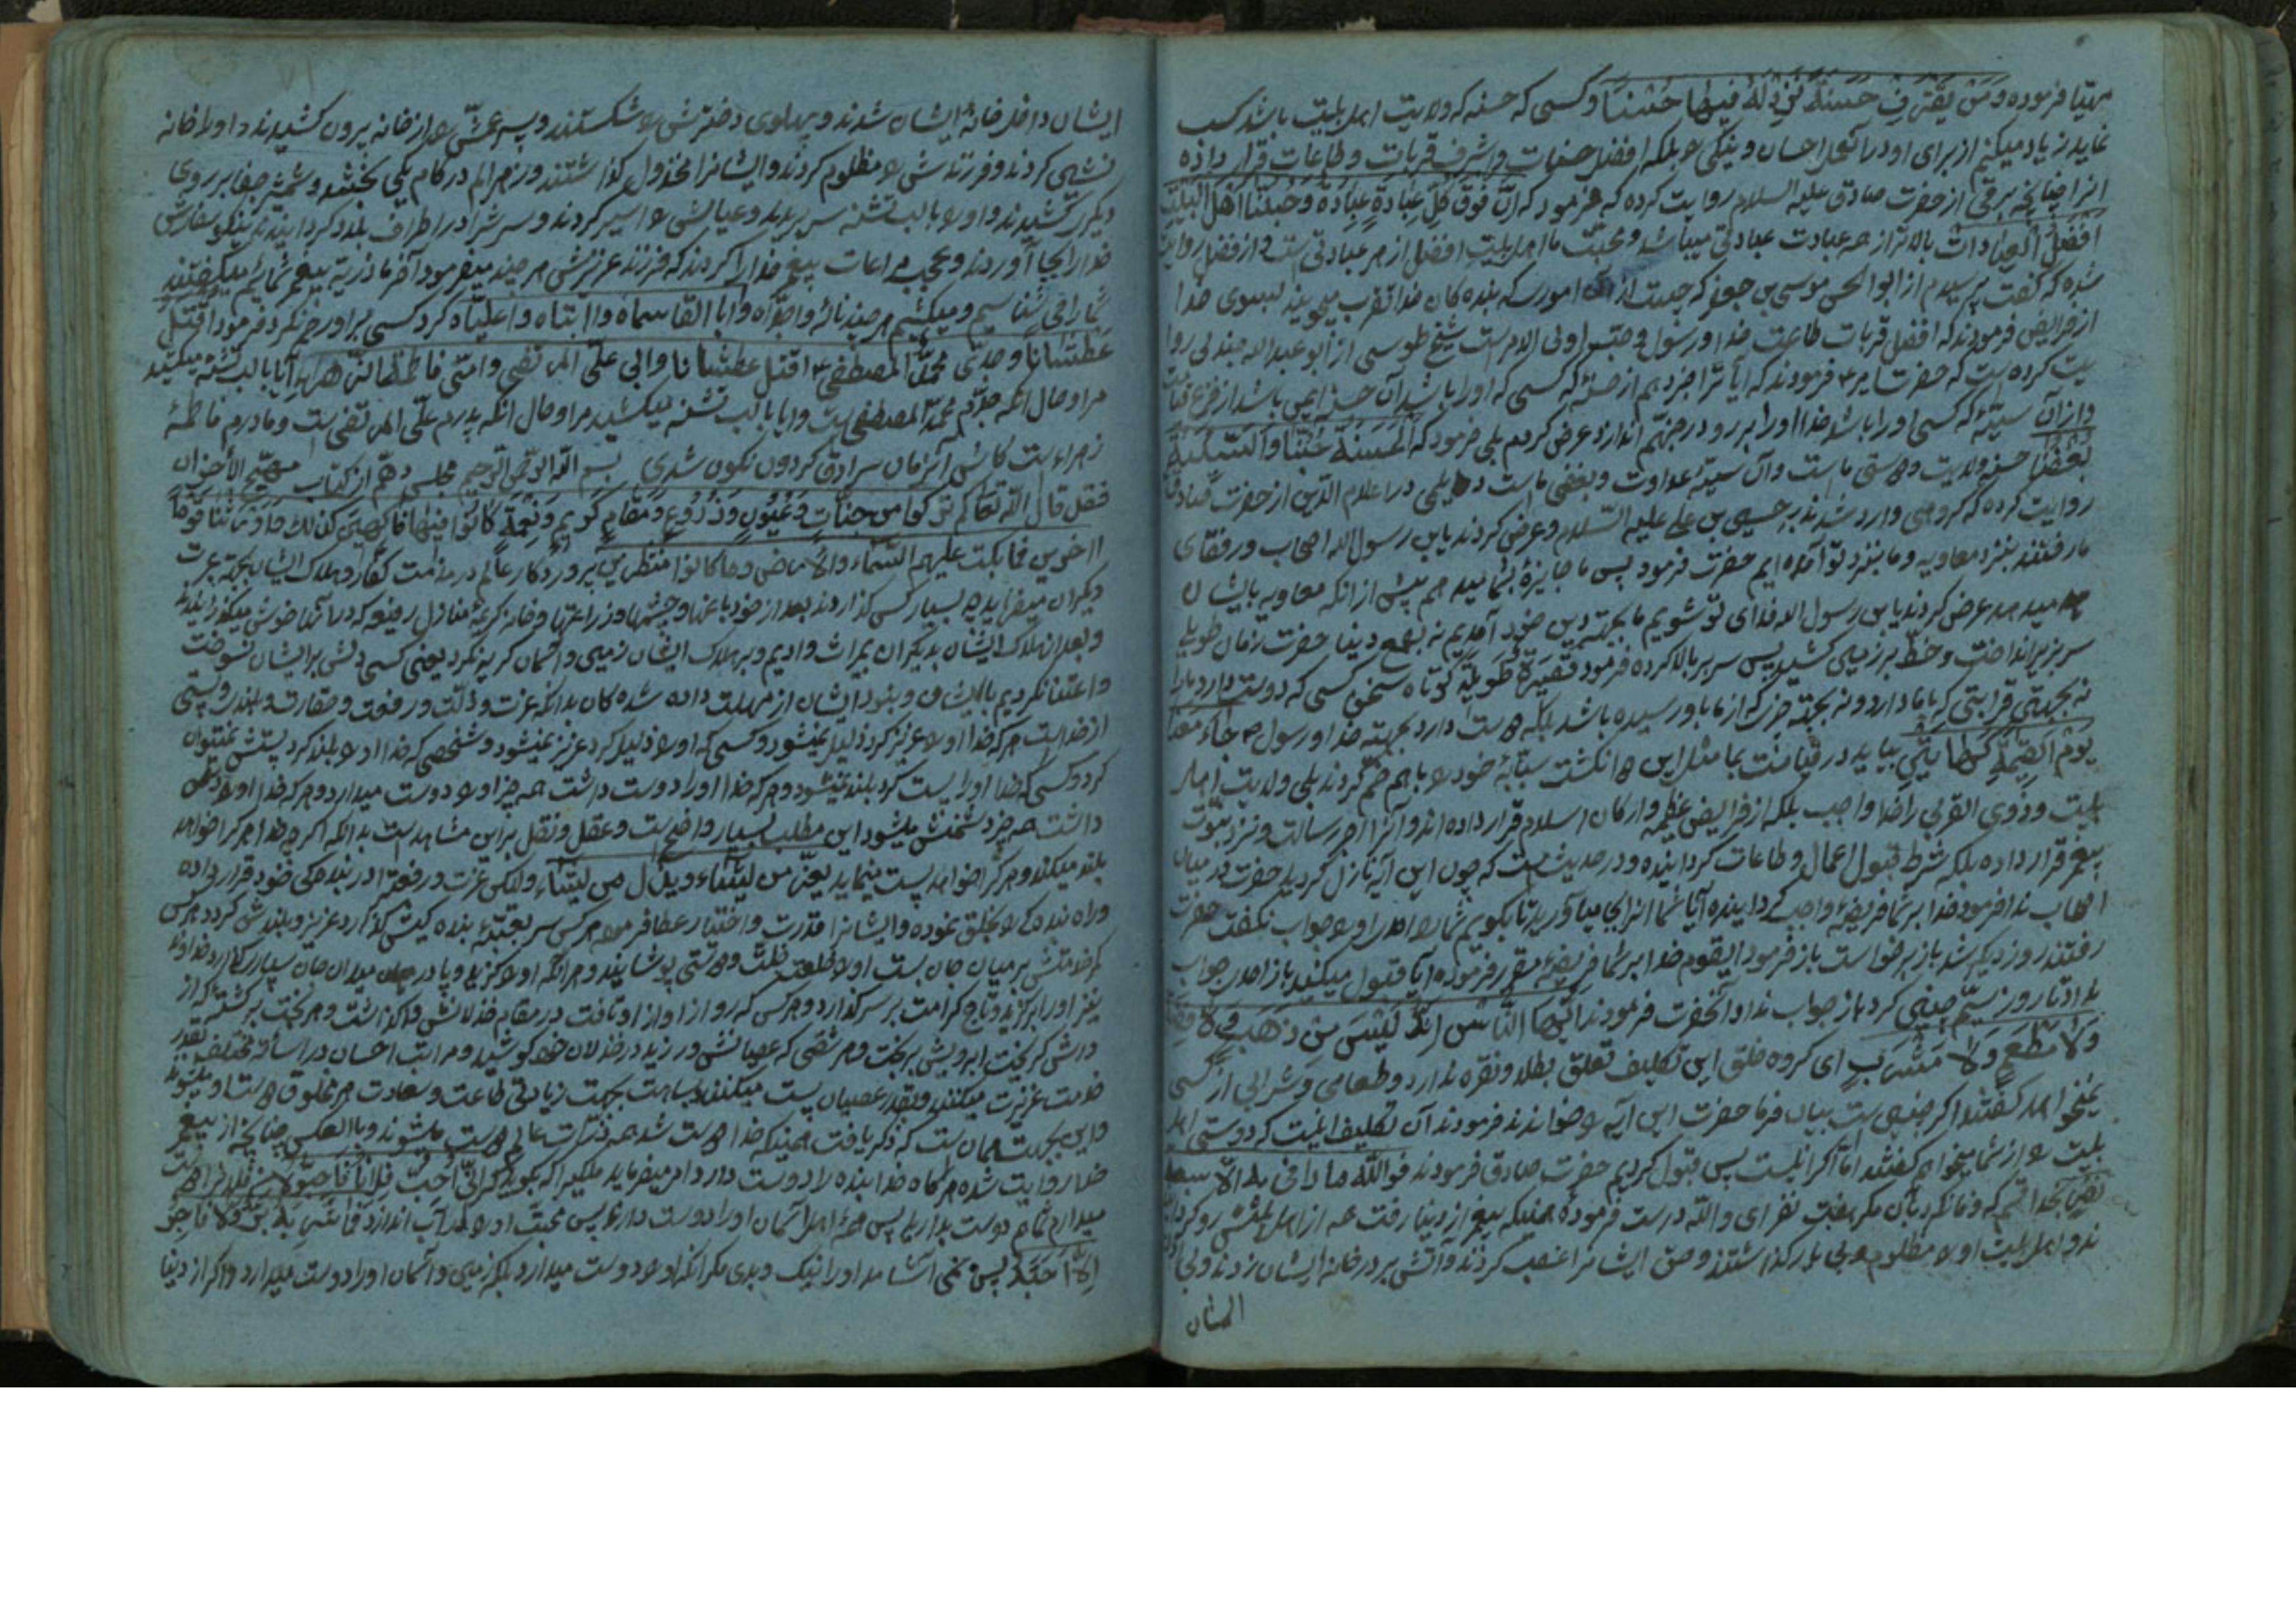 مهیّا فرموده وَمَنْ یَقْتَرِفْ حَسَنَةً نَزِدْ لَهُ فِیهَا حُسْنًا و کسی که حسنه که ولایت اهل بیت باشد کسب
نماید زیاد میکنم از برای او در آن احسان و نیکی بلکه افضل حسنات و اشرف قربات و طاعات قرار داده
انرا چنانچه برقی از حضرت صادق علیه السلام روایت کرده که فرمود که اِنَّ فَوْقَ کُلِّ عِبَادَةٍ عِبَادَةً وَحُبُّنَا اَهْلَ الْبَیْتِ
اَفْضَلُ الْعِبَادَات بالاتر از هر عبادت عبادتی میباشد و محبّت ما اهل بیت افضل از هر عبادتی است و از فضل روایت
شده که گفت پرسیدم از ابو الحسن موسی بن جعفر که چیست از آن امور که بنده کان خدا تقرب میجویند بسوی خدا
از فرایض فرمودند که افضل قربات طاعت خدا و رسول و حبّ اولی الامر است شیخ طوسی از ابو عبد الله جدلی روا
یت کرده است که حضرت امیر فرمودند که آیا ترا خبر دهم از حسنهٔ که کسی که او را باشد آن حسنه ایمن باشد از فزع قیامت
و از آن سیّئهٔ که کسی او را باشد خدا او را برو در جهنّم اندازد عرض کردم بلی فرمود که اَلْحَسَنَةُ حُبُّنَا وَالسَّیِّئَةُ
بُغْضُنَا حسنه ولایت و دوستی ما است و آن سیئه عداوت و بغض ما است دیلمی در اعلام الدین از حضرت صادق
روایت کرده که گروهی وارد شدند بر حسین بن علی علیه السّلام و عرض کردند یابن رسول الله اصحاب و رفقای
ما رفتند بنزد معاویه و ما بنزد تو آمده ایم حضرت فرمود پس ما جایزهٔ بشما میدهم پیش از انکه معاویه بایشان
میدهد عرض کردند یابن رسول الله فدای تو شویم ما بجهة دین خود آمدیم نه بطمع دنیا حضرت زمان طویلی
سر بزیر انداخت و خطّ بر زمین کشید پس سر بر بالا کرده فرمود قَصِیرَةٌ طَوِیلَةٌ کوتاه سخن کسی که دوست دارد ما را
نه بجهتی قرابتی که با ما دارد و نه بجهة چیزی که از ما باو رسیده باشد بلکه دوست دارد بجهة خدا و رسول جَاءَ مَعَنَا
یَوْمَ الْقِیٰمَةِ کَهَاتَیْنِ بیاید در قیامت با ما مثل این دو انکشت سبّابهٔ خود را با هم ضم کردند بلی ولایت اهل
بیت و ذوی القربی را خدا واجب بلکه از فرایض عظیمه و ارکان اسلام قرار داده اند و آنرا اجر رسالت و مزد نبوّت
پیغمبر قرار داده بلکه شرط قبول اعمال و طاعات کردانیده و در حدیث است که چون این آیه نازل کردید حضرت در میان
اصحاب ندا فرمود خدا بر شما فریضهٔ واجب کردانیده آیا شما انرا بجا میآورید تا بکویم شما را احدی او را جواب نکفت حضرت
رفتند روز دیگر شد باز برخواست باز فرمود ایقوم خدا بر شما فریضهٔ مقرر فرموده آیا قبول میکنید باز احدی جواب
نداد تا روز سیّم چنین کرد باز جواب نداد آنحضرت فرمودند اَیُّهَا النَّاسُ اِنَّهُ لَیْسَ مِنْ ذَهَبٍ وَلَا فِضَّةٍ
وَلَا مَطْعَمٍ وَلَا مَشْرَبٍ ای گروه خلق این تکلیف تعلق بطلا و نقره ندارد و طعامی و شرابی از کسی
نمیخواهد گفتند اگر چنین است بیان فرما حضرت این آیه را خواندند فرمودند آن تکلیف اینست که دوستی اهل
بیت را از شما میخواهم گفتند امّا اکر اینست پس قبول کردیم حضرت صادق فرمودند فوالله ما وافی به الّا سبعة
نفر بخدا قسم که وفا نکرد بآن مکر هفت نفر ای والله درست فرموده همینکه پیغمبر از دنیا رفت همه از اهل بیتش رو کردان
شدند و اهل بیت او را مظلوم و بی یار گذاشتند و حق ایشانرا غصب کردند و آتش بر در خانه ایشان زدند و بی اذن
ایشان
ایشان داخل خانهٔ ایشان شدند و پهلوی دخترش را شکستند و پسر عمّش را از خانه بیرون کشیدند و او را خانه
نشین کردند و فرزندش را مظلوم کردند و ایشانرا مخذول گذاشتند و زهر الم در کام یکی بخشد و شمشیر جفا بر روی
دیگری کشیدند و او را با لب تشنه سر بریدند و عیالش را اسیر کردند و سرش را در اطراف بلاد کردانیدند نیکو سفارش
خدا را بجا آوردند و عجب مراعات پیغمبر خدا را کردند که فرزند عزیزش هر چند میفرمود آخر ما ذریّهٔ پیغمبر شمائیم میکفتند
شما را می شناسیم و میکشیم هر چند نالهٔ وا جدّاه وا ابا القاسماه وا ابتاه وا علیّاه کرد کسی بر او رحم نکرد و فرمود اُقْتَلُ
عَطْشَانًا وجدّی محمّد المصطفی اُقتل عطشانا وابی علیّ المرتضی وامّی فاطمة الزهراء آیا با لب تشنه میکشید
مرا و حال انکه جدّم محمّد المصطفی است و آیا با لب تشنه میکشید مرا و حال انکه پدرم علّی المرتضی است و مادرم فاطمهٔ
زهراء است کاش آنزمان سرادق گردون نگون شدی بسم الله الرحمن الرحیم مجلس دهم از کتاب مهیّج الأحزان
فقل قال الله تعالی کَمْ تَرَکُوا مِنْ جَنَّاتٍ وَعُیُونٍ وَزُرُوعٍ وَمَقَامٍ کَرِیمٍ وَنَعْمَةٍ کَانُوا فِیهَا فَاکِهِینَ کَذٰلِكَ وَاَوْرَثْنَاهَا قَوْمًا
آخرین فما بکت علیهم السّماء والأرض وما کانوا منظرین پروردگار عالم در مذمت کفّار و هلاک ایشان بجهة عبرت
دیگران میفرماید چه بسیار کس گذاردند بعد از خود باغها و چشمها و زراعتها و خانه کریمهٔ منازل رفیعه که در آنها خوش میگذرانیدند
و بعد از هلاک ایشان بدیگران میراث دادیم و بر هلاک ایشان زمین و آسمان گریه نکرد یعنی کسی دلش بر ایشان نسوخت
و اعتنا نکردیم بایشان و نبود ایشان از مهلت داده شده کان بدانکه عزت و ذلّت و رفعت و حقارت و بلندی و پستی
از خداست هر که خدا او را عزیز کرد ذلیل نمیشود و کسی که او را ذلیل کرد عزیز نمیشود و شخصی که خدا او را بلند کرد پستش نمیتوان
کرد و کسی که خدا او را پست کرد بلند نمیشود و هر که خدا او را دوست داشت همه چیز او را دوست میدارد و هر که خدا او را دشمن
داشت همه چیز دشمنش میشود این مطلب بسیار واضح است و عقل و نقل بر این مشاهد است بدانکه اگر چه خدا هر کرا خواهد
بلند میکند و هر کرا خواهد پست مینماید یعزّ من یشاء ویذلّ من یشاء ولکن عزّت و رفعترا در بندهکی خود قرار داده
و راه بندهکی را بخلق نموده و ایشانرا قدرت و اختیار عطا فرموده هر کس سر بعتبهٔ بنده کیش گذارد عزیز و بلندش کرد و هر کس
کمر خدمتش بر میان جان بست او را خلعت خلّت و دوستی پوشانید و هر انکه او را کزید و پا در میدان جان سپاری گذارد خداوند
نیز او را برگزید و تاج کرامت بر سر گذارد و هر کس که رو از او تافت در مقام خذلانش واگذاشت و هر بخت برگشته که از
درش گریخت آبرویش بریخت و هر شقی که عصیانش ورزید در خذلان خود کوشید و مراتب احسان در اسائه مختلف بقدر
خدمت عزیزت میکنند و بقدر عصیان پست میکنند و بسا هست بجهت زیادتی طاعت و سعادت هر مخلوق دوست او میشوند
و این بجهت همان است که ذکر یافت همینکه خدا دوست شد همه ذرّات عالم دوست میشوند و بالعکس چنانچه از پیغمبر
خدا روایت شده هرگاه خدا بنده را دوست دارد امر میفرماید ملکیرا که بگوید که اِنِّی اُحِبُّ فُلَانًا فَاَحِبُّوهُ من فلانرا دوست
میدارم شما هم دوست بدارید پس همهٔ اهل آسمان او را دوست دارند پس محبّت او را در آب اندازد فَلَا شَرِبَ بَرٌّ وَلَا فَاجِرٌ
اِلَّا اَحَبَّهُ پس نمی آشامد او را نیک و بدی مگر آنکه او را دوست میدارد بلکه زمین و آسمان او را دوست میدارد و اگر از دنیا